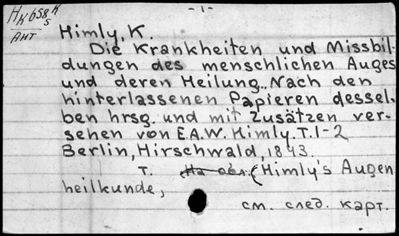 - 1 -
Нк658 к/5
Амт
Himly, K.
Die Krankheiten und Missbil-
dungen des menschlichen Auges
und deren Heilung. Nach den
hinterlassenen Papieren dessel-
ben hrsg. und mit Zusätzen ver-
sehen von E.A.W. Himly. T. 1-2
Berlin, Hirschwald, 1843.
T. На обл. (Himly's Augen
heilkunde,
см. след. карт.